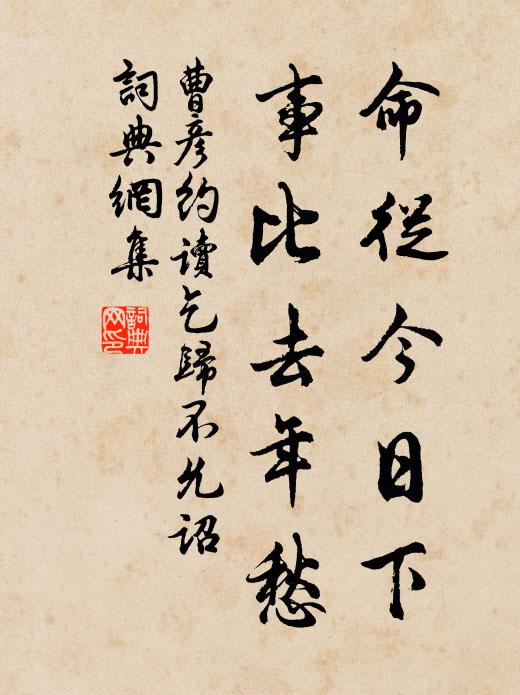 命從今日下
事比去年愁
曹彥約讀乞歸不允詔
詞典網集
詞典网印